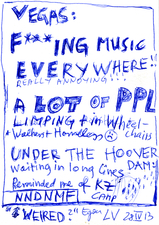 VEGAS:
F***ING MUSIC
EVERYWHERE!!
REALLY ANNOYING...
A LOT OF PPL
LIMPING + in Wheel-
chairs
Walkers Homeless
UNDER THE HOOVER
DAM!
Waiting in long Lines
Reminded me of KZ
CAMP
NNDNME
"& WEIRED" LV 20 IV 13